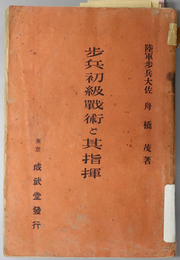 陸軍歩兵大佐 舟橋茂著
歩兵初級戰術と其指揮
東京 成武堂發行